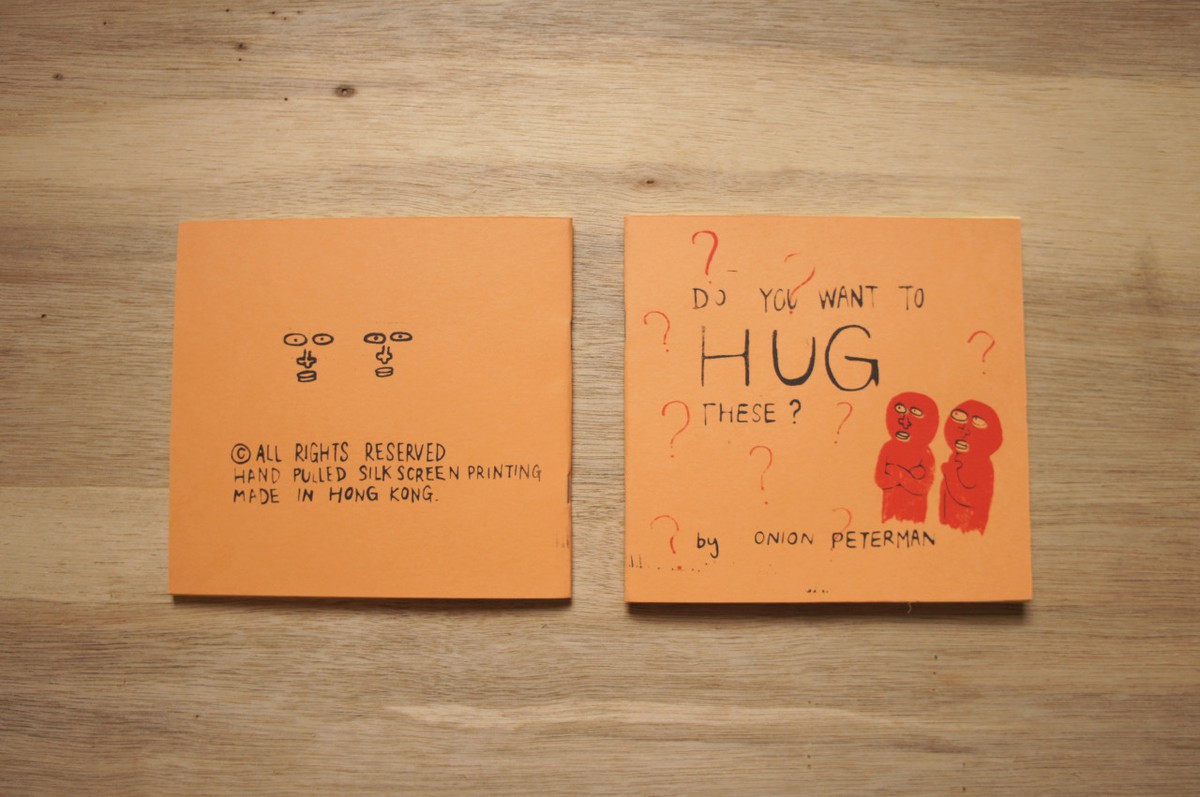 © ALL RIGHTS RESERVED
HAND PULLED SILKSCREEN PRINTING
MADE IN HONG KONG.
?
?
DO YOU WANT TO
?
HUG
?
THESE ?
?
?
?
?
?
by ONION PETERMAN